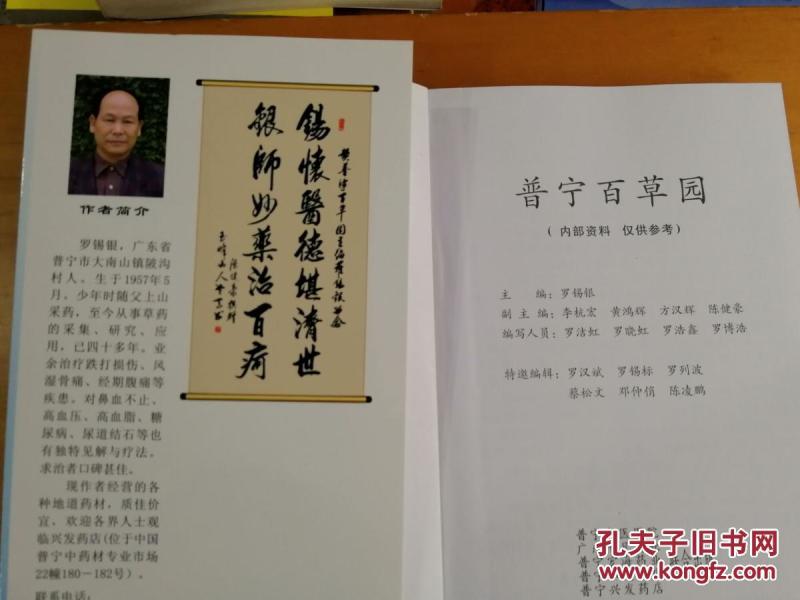 作者简介
罗锡银，广东省
普宁市大南山镇陂沟
村人。生于1957年5
月。少年时随父上山
采药，至今从事草药
的采集、研究、应
用，已四十多年。业
余治疗跌打损伤、风
湿骨痛、经期腹痛等
疾患。对鼻血不止、
高血压、高血脂、糖
尿病、尿道结石等也
有独特见解与疗法。
求治者口碑甚佳。
现作者经营的各
种地道药材，质佳价
宜，欢迎各界人士观
临兴发药店(位于中国
普宁中药材专业市场
22幢180－182号)。
联系电话：
錫懷醫德堪濟世
銀師妙藥治百疴
普宁百草园
( 内部资料 仅供参考)
主 编：罗锡银
副 主 编：李杭宏 黄鸿辉 方汉辉 陈健豪
编写人员：罗洁虹 罗晓虹 罗浩鑫 罗博浩
特邀编辑：罗汉斌 罗锡标 罗列波
蔡松文 邓仲俏 陈凌鹏
普宁兴发药店
孔夫子旧书网
www.kongfz.com